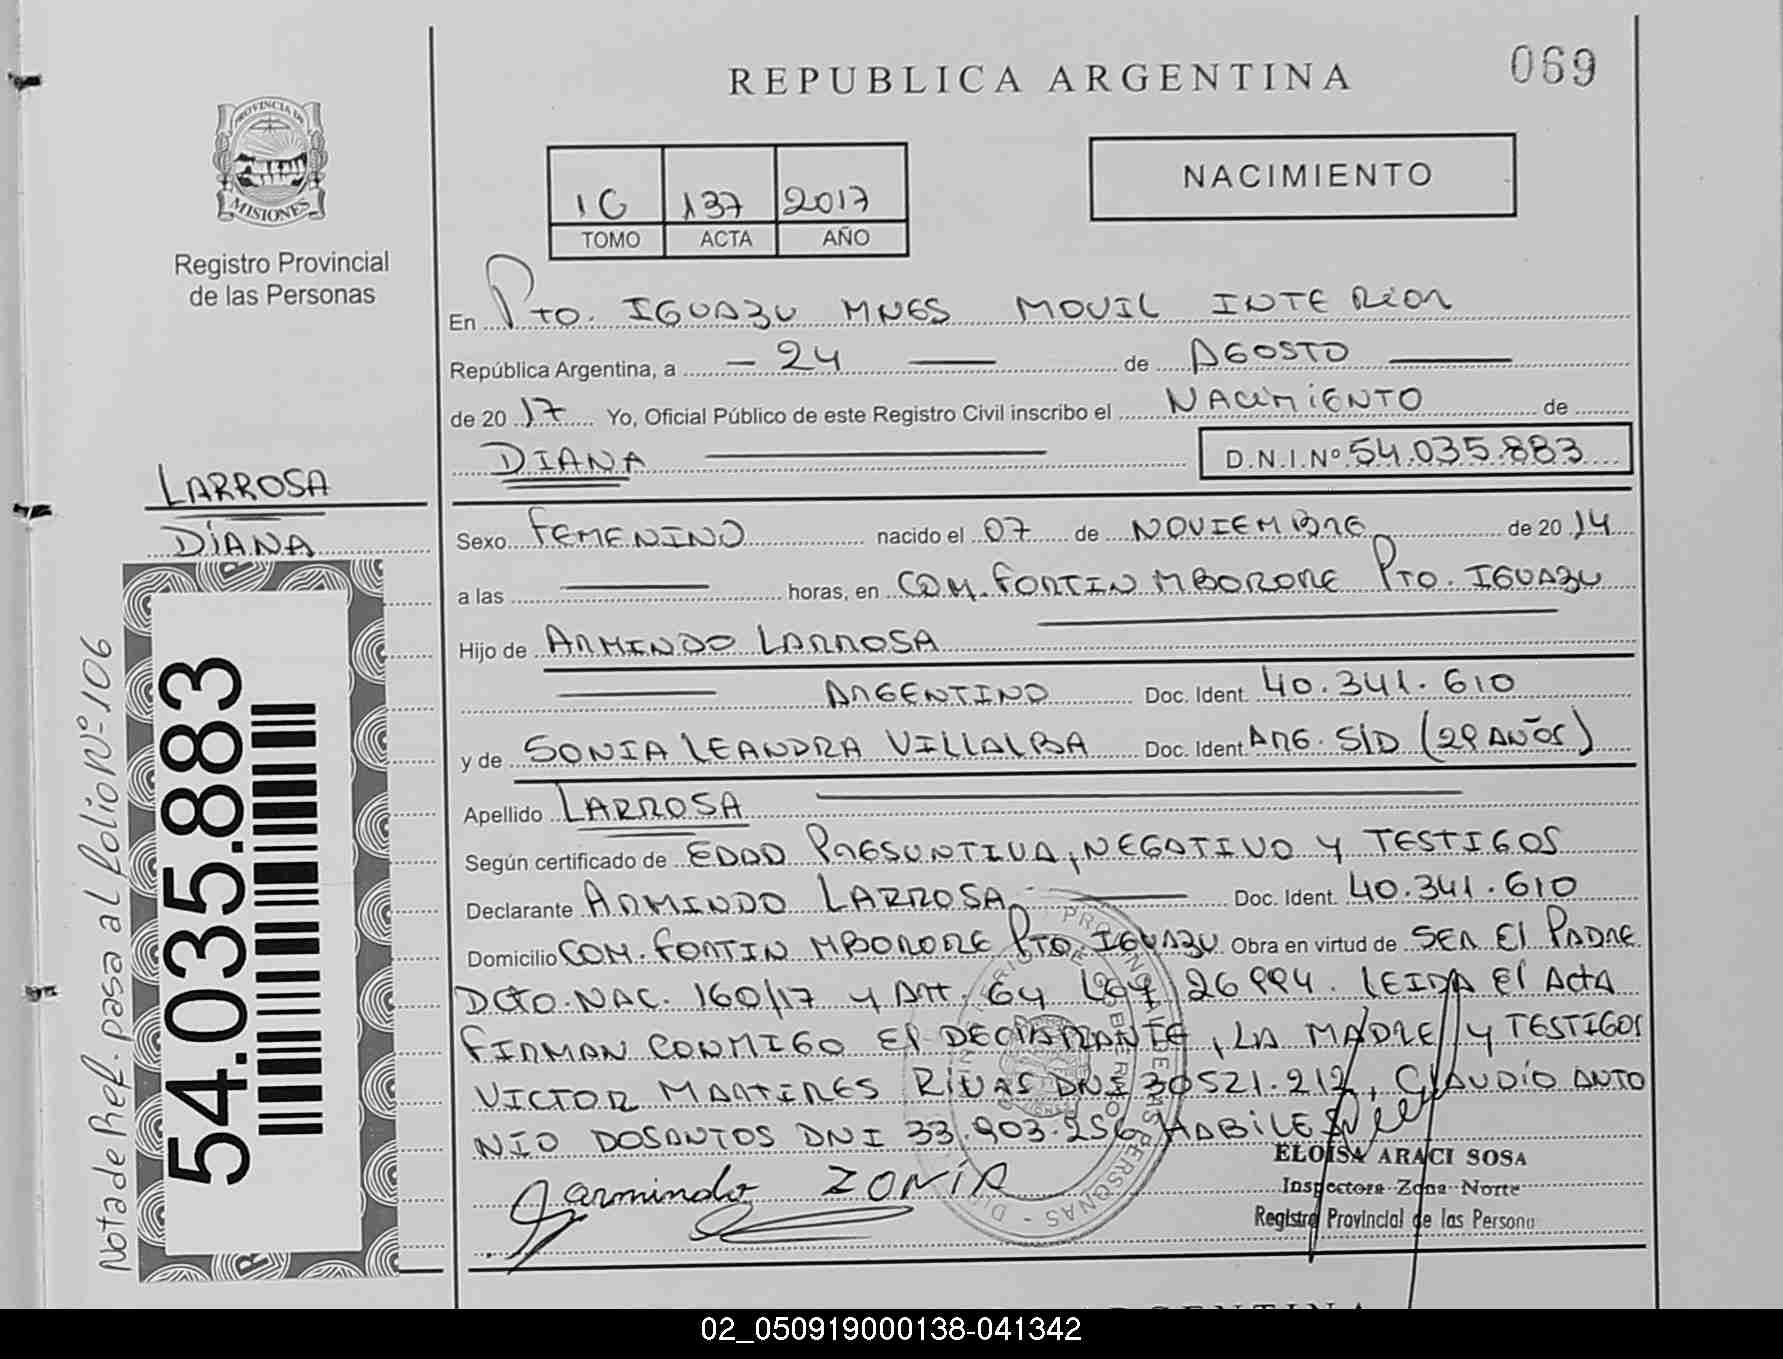 069
REPUBLICA ARGENTINA
PROVINCIA DE
MISIONES
Registro Provincial
de las Personas
1C 137 2017
TOMO ACTA AÑO
NACIMIENTO
En Pto. IGUAZU MNES MOVIL INTERIOR
República Argentina, a - 24 de AGOSTO
de 20 17 Yo, Oficial Público de este Registro Civil inscribo el NACIMIENTO de
DIANA D.N.I.Nº 54.035.883
LARROSA
DIANA
Nota de Ref. pasa al folio Nº 106
54.035.883
Sexo FEMENINO nacido el 07 de NOVIEMBRE de 20 14
a las horas, en COM. FORTIN MBORORE Pto. IGUAZU
Hijo de ARMINDO LARROSA
ARGENTINO Doc. Ident. 40.341.610
y de SONIA LEANDRA VILLALBA Doc. Ident. ARG. S/D (29 AÑOS)
Apellido LARROSA
Según certificado de EDAD PRESUNTIVA, NEGATIVO Y TESTIGOS
Declarante ARMINDO LARROSA Doc. Ident. 40.341.610
Domicilio COM. FORTIN MBORORE Pto. IGUAZU Obra en virtud de SER El PADRE
DCTO. NAC. 160/17 y Art. 64 Ley 26994. LEIDA El ActA
FIRMAN CONMIGO El DECLARANTE, LA MADRE y TESTIGOS
VICTOR MARTINES RIVAS DNI 30521.212, CLAUDIO ANTO
NIO DOSANTOS DNI 33.903.256 HABILES
armindo ZONIA
ELOISA ARACI SOSA
Inspectora Zona Norte
Registro Provincial de las Persona
02_050919000138-041342